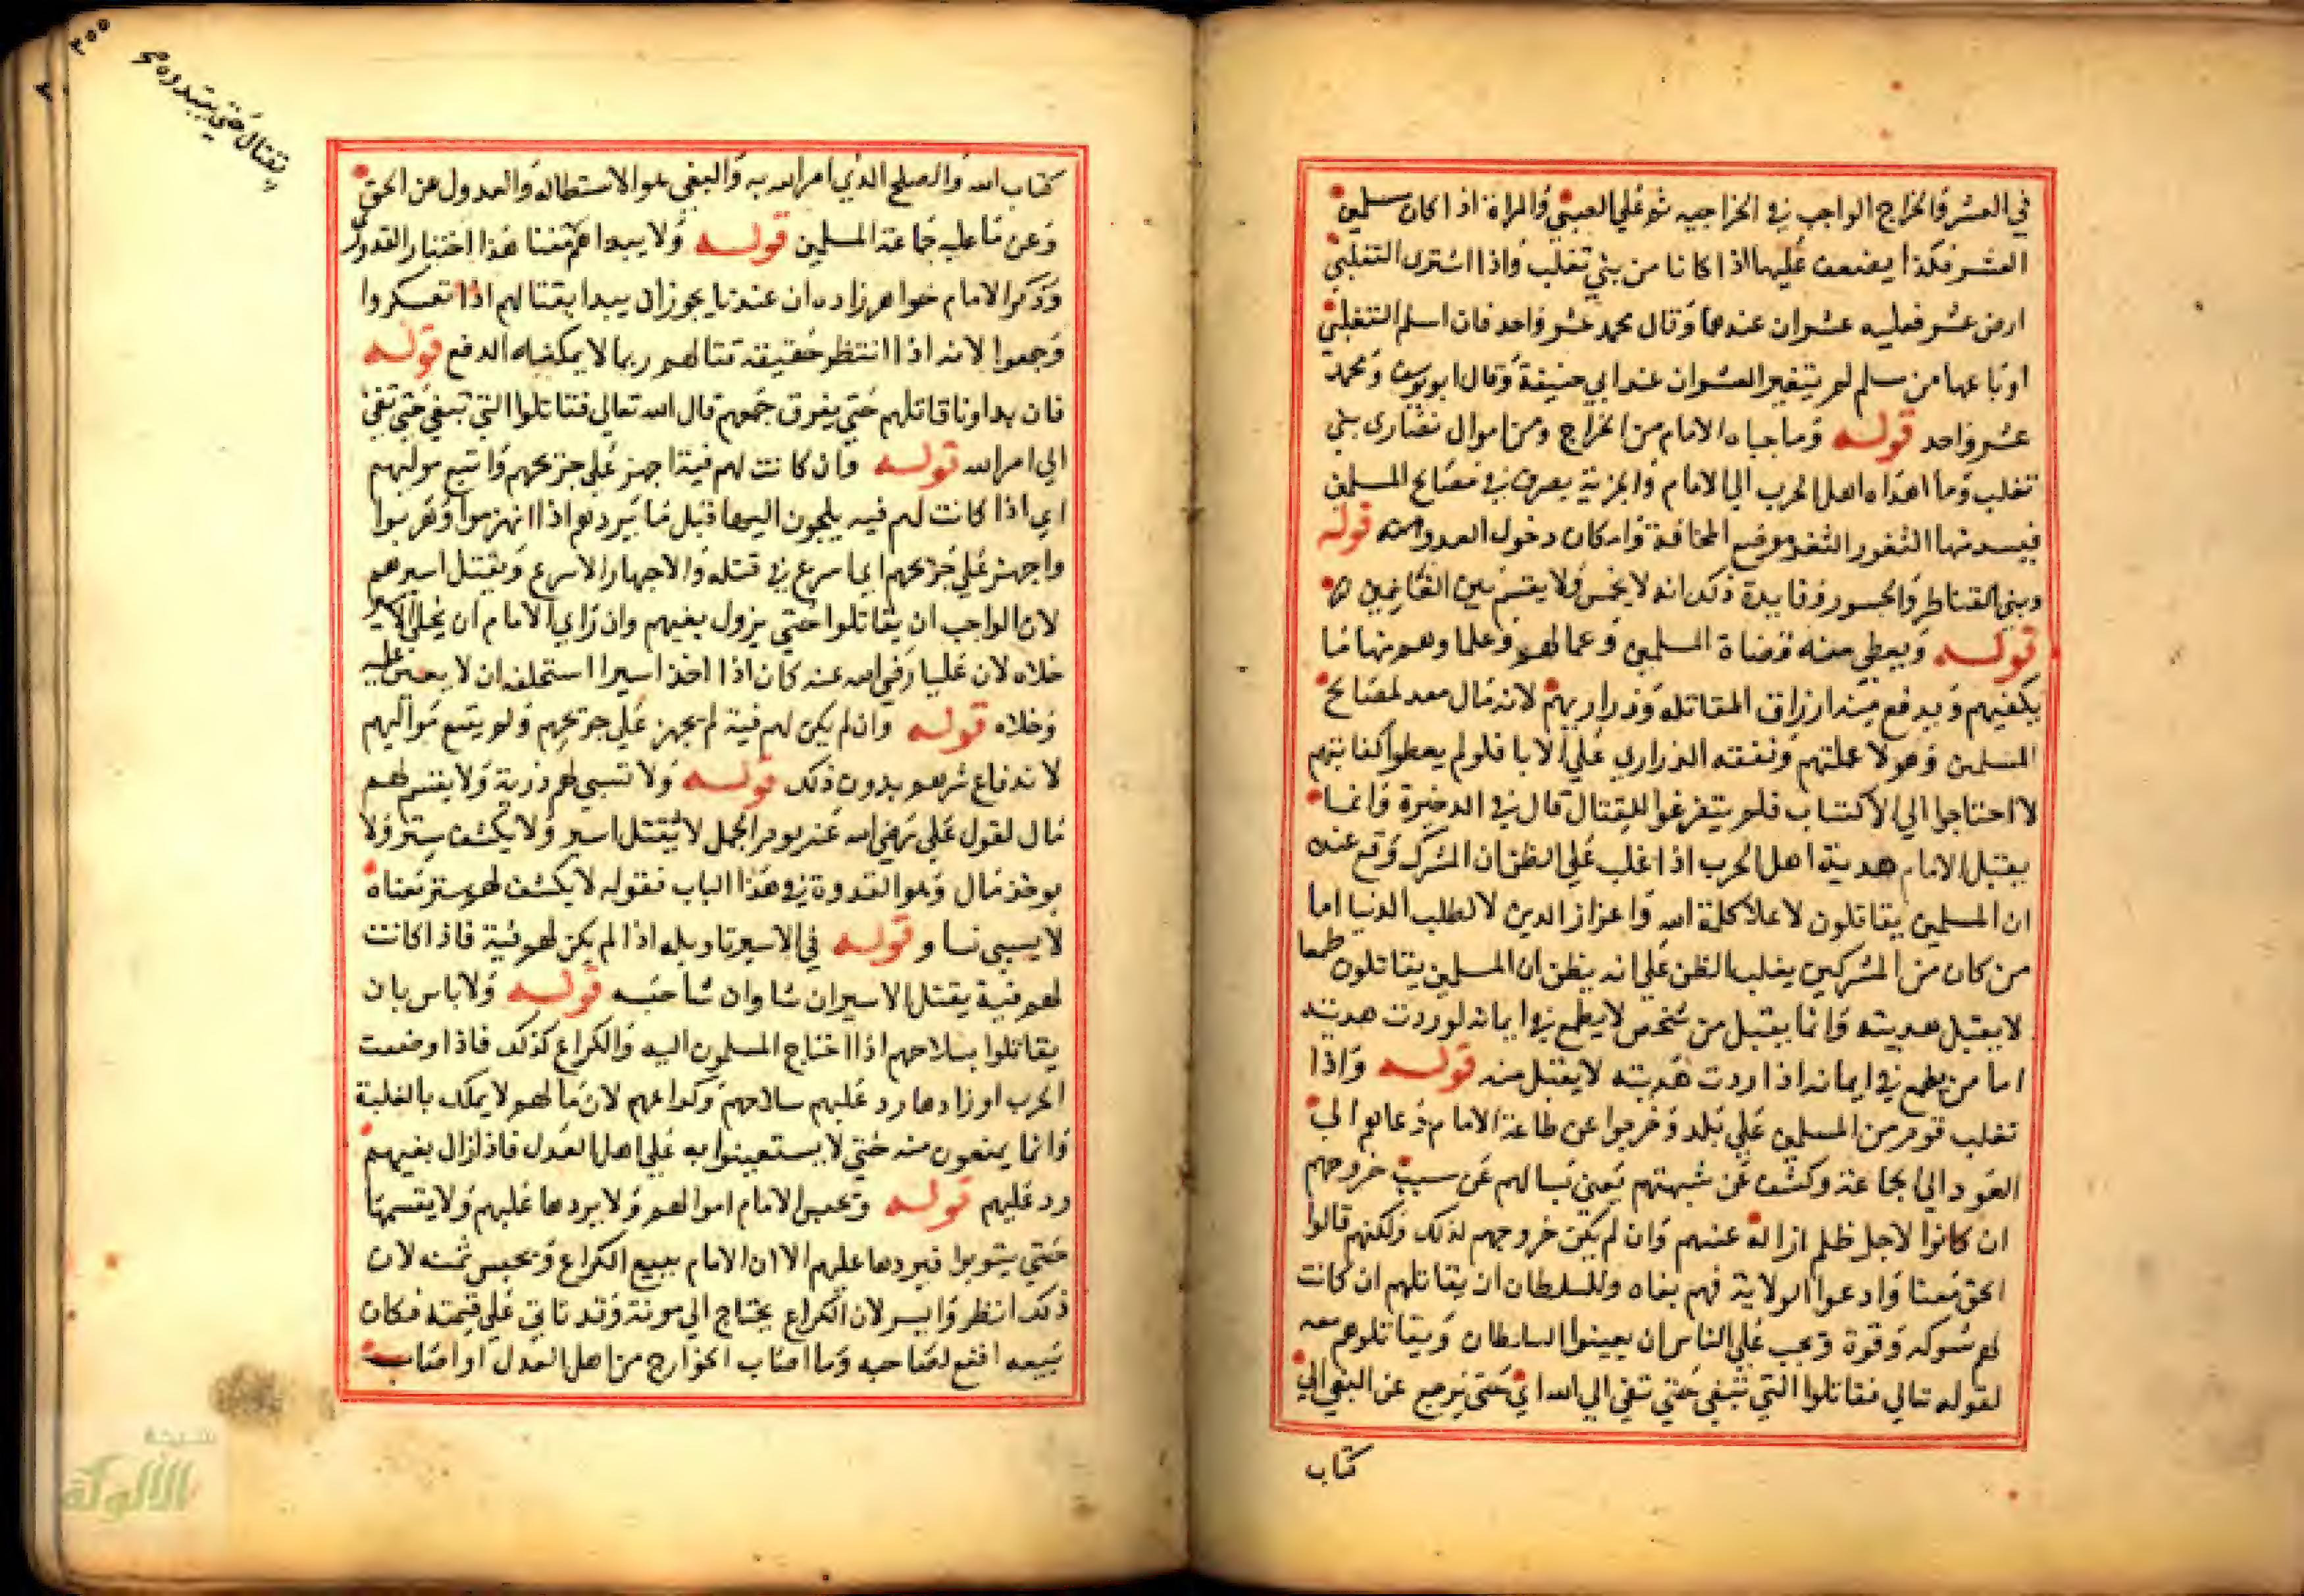 في العشر والخراج الواجب في الخراجيه ثم علي الصبي والمراة اذا كان مسلمين
العشر فكذا يضعف عليهما اذا كانا من بني تغلب واذا اشترى التغلبي
ارض عشر فعليه عشران عندهما وقال محمد عشر واحد فان اسلم التغلبي
او باعها من مسلم لم يتغير العشران عند ابي حنيفة وقال ابو يوسف ومحمد
عشر واحد قوله وما جباه الامام من الخراج ومن اموال نصارى بني
تغلب وما اهداه اهل الحرب الي الامام والجزية يصرف في مصالح المسلمين
فيسد منها الثغور الثغر موضع المخافة وامكان دخول العدو منه قوله
وبني القناطر والجسور وفايدة ذكر انه لا يخمس ولا يقسم بين الغانمين
قوله ويعطي منه قضاة المسلمين وعمالهم وعلماوهم منها ما
يكفيهم ويدفع منه ارزاق المقاتله وذراريهم لانه مال معد لمصالح
المسلمين وهولا عملتهم ونفقه الذراري علي الابا فلو لم يعطوا كفايتهم
لا احتاجوا الي الاكتساب فلم يتفرغوا للقتال قال في الدخيرة وانما
يقبل الامام هدية اهل الحرب اذا غلب علي الظن ان المشرك وقع عنده
ان المسلمين يقاتلون لاعلا كلمة الله واعزاز الدين لا لطلب الدنيا اما
من كان من المشركين يغلب الظن علي انه يظن ان المسلمين يقاتلون طمعا
لا يقبل هديته وانما يقبل من شخص لا يطمع في ايمانه لو ردت هديته
اما من يطمع في ايمانه اذا ردت هديته لا يقبل منه قوله واذا
تغلب قوم من المسلمين علي بلد وخرجوا عن طاعة الامام دعاهم الي
العود الي الجاعة وكشف عن شبهتهم يعني يسالهم عن سبب خروجهم
ان كانوا لاجل ظلم ازاله عنهم وان لم يكن خروجهم لذلك ولكنهم قالوا
الحق معنا وادعوا الولاية فهم بغاه وللسلطان ان يقاتلهم ان كانت
لهم شوكه وقوة ويجب علي الناس ان يعينوا السلطان ويقاتلوهم معه
لقوله تعالي فقاتلوا التي تبغي حتي تفي الي الله اي حتى يرجع عن البغي الي
كتاب
يقتال حتي يبتدوه
٣٥٥
كتاب الله والصلح الذي امر الله به والبغي هو الاستطاله والعدول عن الحق
وعن ما عليه جماعة المسلمين قوله ولا يبدأهم هذا اختيار القدوري
وذكر الامام خواهر زاده ان عندنا يجوز ان يبدا بقتالهم اذا تعسكروا
وجمعوا لانه اذا انتظر حقيقة قتالهم ربما لا يمكنه الدفع قوله
فان بداونا قاتلهم حتي يفرق جمعهم قال الله تعالي فقاتلوا التي تبغي حتي تفي
الي امر الله قوله فان كانت لهم فية اجهز علي جريحهم واتبع موليهم
اي اذا كانت لهم فيه يلجون اليها قبل اذا انهزموا وهربوا
واجهز علي جريحهم اي اسرع في قتله والاجهاز الاسرع ويقتل اسيرهم
لان الواجب ان يقاتلوا حتي يزول بغيهم وان راي الامام ان يخلي الاسير
خلاه لان عليا رضي الله عنه كان اذا اخذ اسيرا استحلفه ان لا يعين عليه
وخلاه قوله وان لم يكن لهم فية لم يجهز علي جريحهم ولم يتبع مواليهم
لاندفاع شرهم بدون ذلك قوله ولا تسبي لهم ذرية ولا يغنم لهم
مال لقول علي رضي الله عنه يوم الجمل لا يقتل اسير ولا يكشف ستر ولا
يوخذ مال وهو القدوة في هذا الباب فقوله لا يكشف لهم ستر معناه
لا يسبي نسا و قوله في الاسير تاويله اذا لم يكن لهم فية فاذا كانت
لهم فية يقتل الاسير ان شا وان شا حبسه قوله ولا باس بان
يقاتلوا بسلاحهم اذا احتاج المسلمون اليه والكراع كذلك فاذا وضعت
الحرب اوزارها رد عليهم سلاحهم وكراعهم لان مالهم لا يملك بالغلبة
وانما يمنعون منه حتي لا يستعينوا به علي اهل العدل فاذا زال بغيهم
رد عليهم قوله ويحبس الامام اموالهم ولا يردها عليهم ولا يقسمها
حتي يتوبوا فيردها عليهم الا ان الامام يبيع الكراع ويحبس ثمنه لان
ذلك انظر وايسر لان الكراع يحتاج الي مونة وقد تاتي علي قيمته فكان
بيعه انفع لصاحبه وما اصاب الخوارج من اهل العدل او اصاب
شبكة
الألوكة